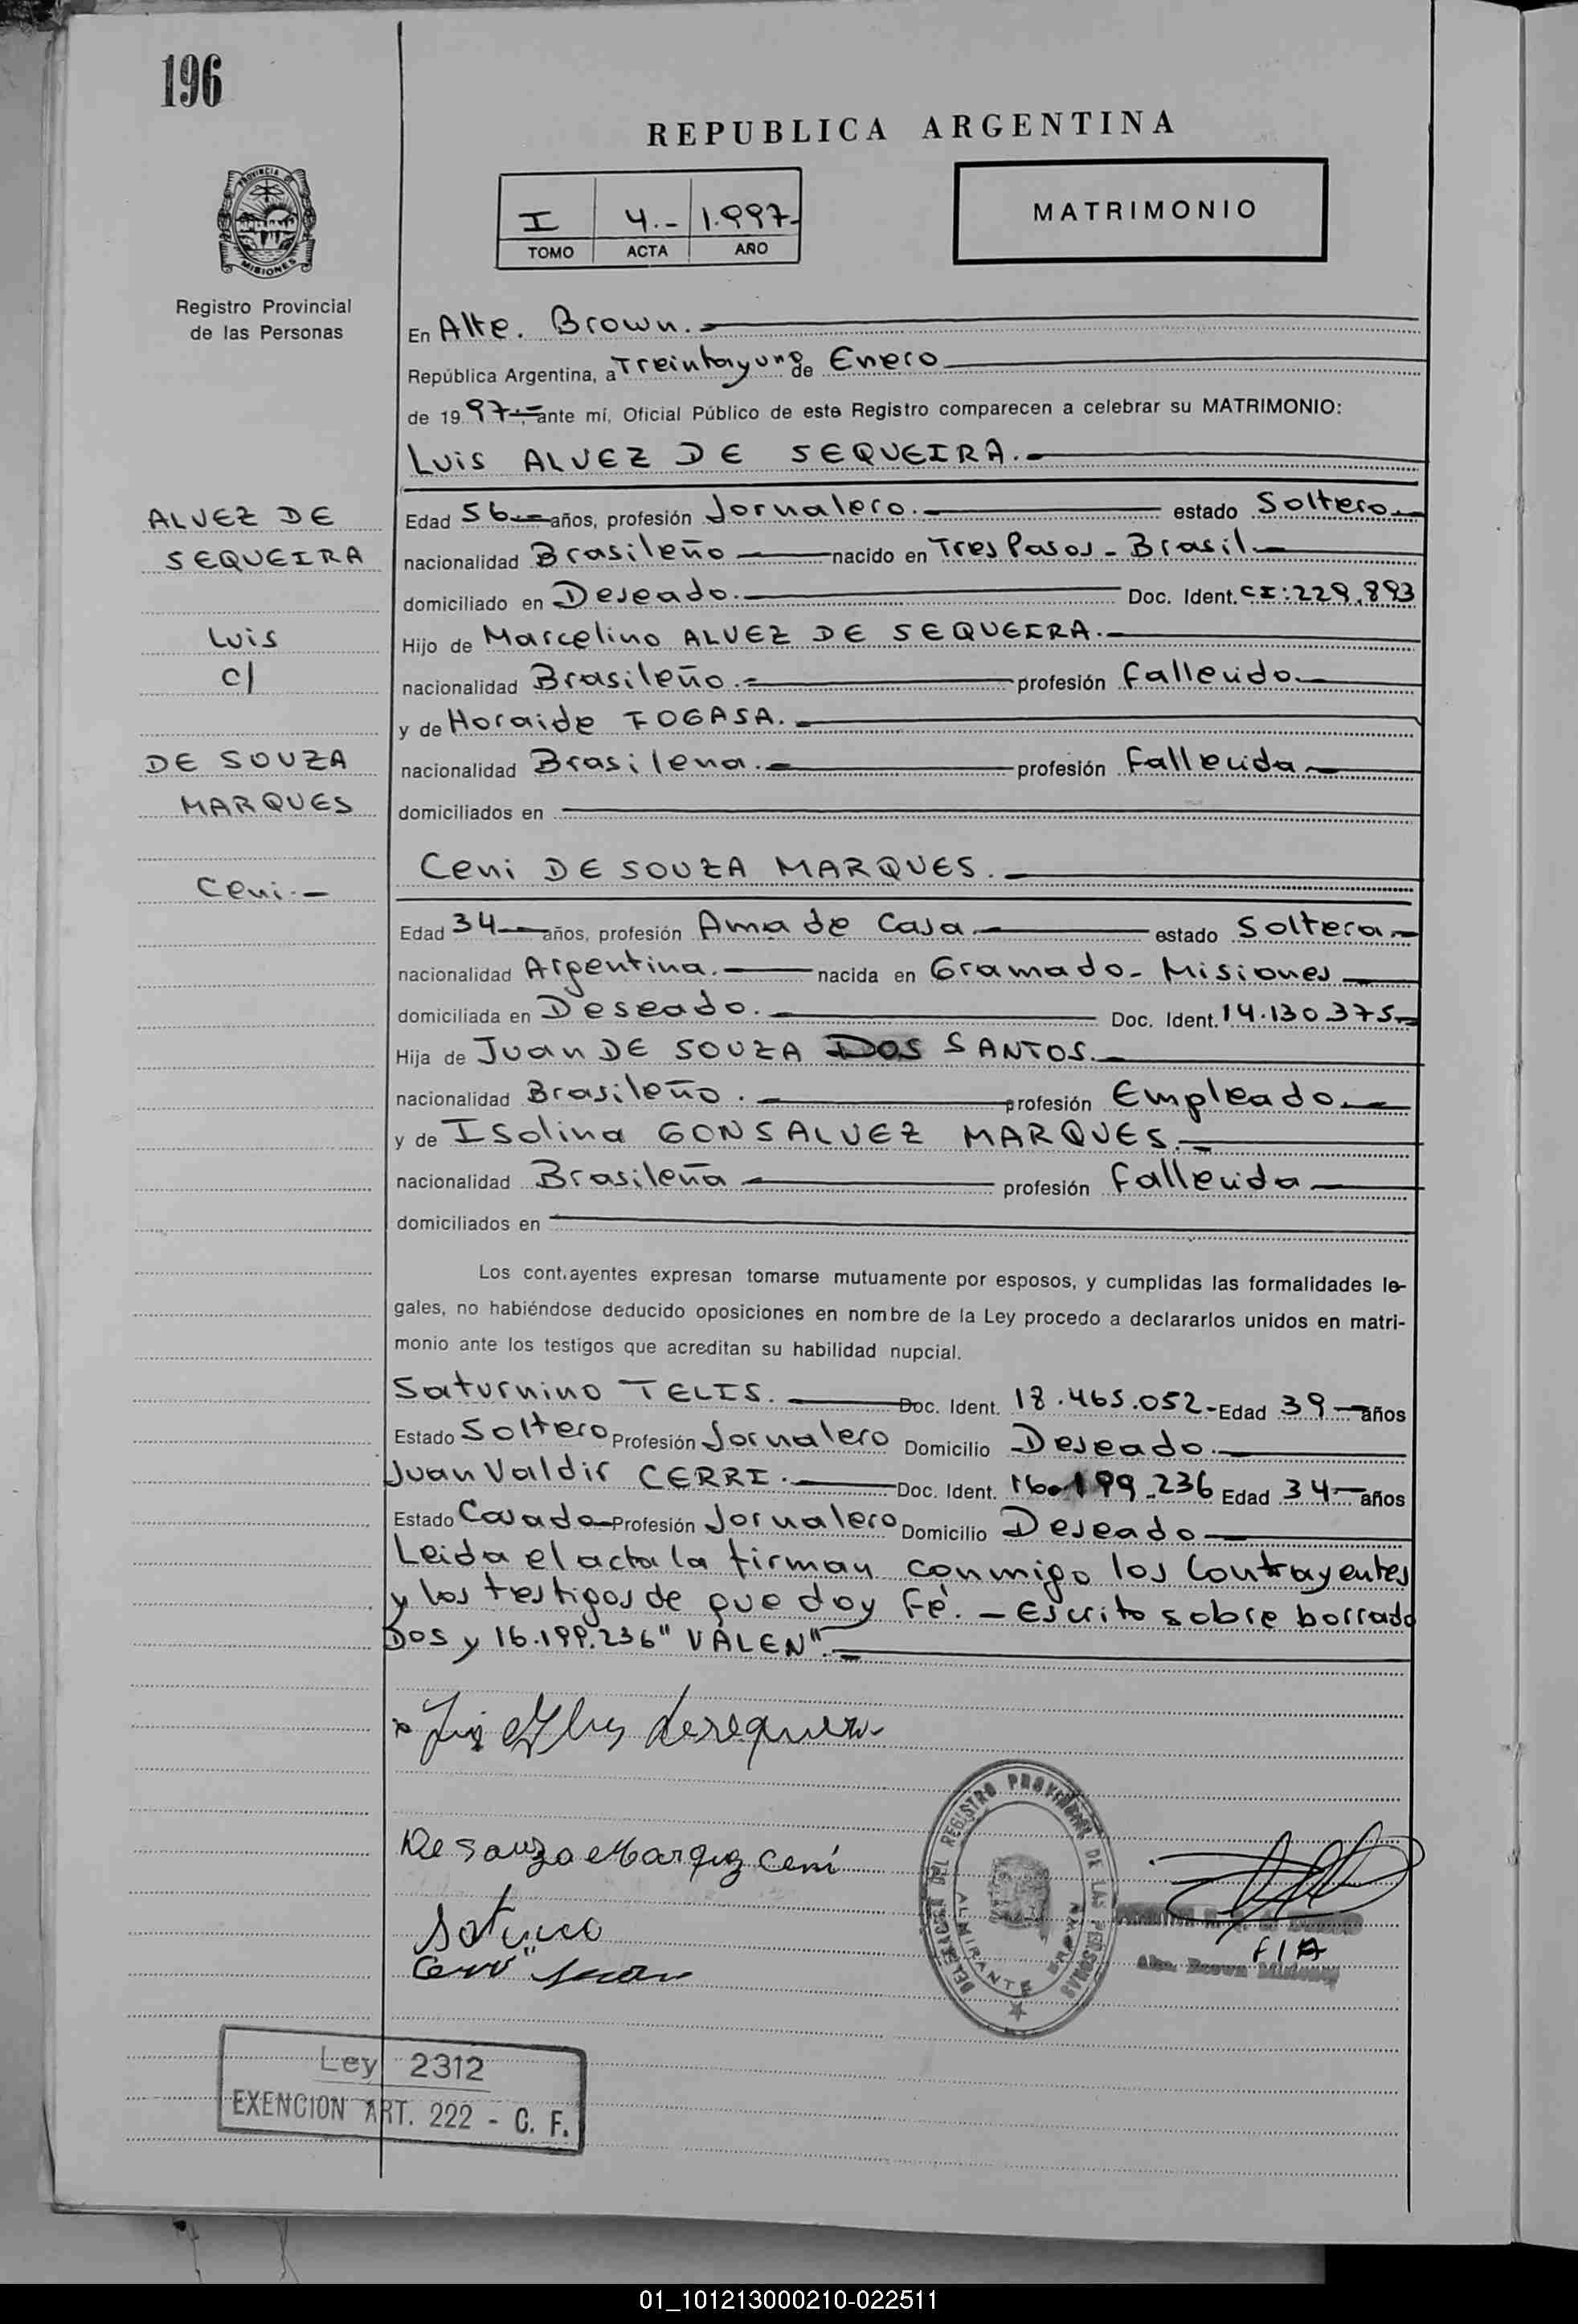 196
REPUBLICA ARGENTINA
PROVINCIA DE
MISIONES
Registro Provincial
de las Personas
I 4.- 1.997-
TOMO ACTA AÑO
MATRIMONIO
En Alte. Brown.
República Argentina, a Treinta y uno de Enero
de 1997.- ante mí, Oficial Público de este Registro comparecen a celebrar su MATRIMONIO:
Luis ALVEZ DE SEQUEIRA.
ALVEZ DE
SEQUEIRA
Luis
c/
DE SOUZA
MARQUES
Ceni.-
Edad 56.- años, profesión Jornalero. estado Soltero
nacionalidad Brasileño nacido en Tres Pasos - Brasil
domiciliado en Deseado. Doc. Ident. CI: 229.893
Hijo de Marcelino ALVEZ DE SEQUEIRA.
nacionalidad Brasileño. profesión fallecido
y de Horaide FOGASA.
nacionalidad Brasilena. profesión fallecida
domiciliados en
Ceni DE SOUZA MARQUES.
Edad 34 años, profesión Ama de Casa estado Soltera
nacionalidad Argentina. nacida en Gramado - Misiones
domiciliada en Deseado. Doc. Ident. 14.130.375
Hija de Juan DE SOUZA DOS SANTOS.
nacionalidad Brasileño. profesión Empleado
y de Isolina GONSALVEZ MARQUES.
nacionalidad Brasileña profesión fallecida
domiciliados en
Los contrayentes expresan tomarse mutuamente por esposos, y cumplidas las formalidades le-
gales, no habiéndose deducido oposiciones en nombre de la Ley procedo a declararlos unidos en matri-
monio ante los testigos que acreditan su habilidad nupcial.
Saturnino TELIS. Doc. Ident. 18.465.052- Edad 39 años
Estado Soltero Profesión Jornalero Domicilio Deseado.
Juan Valdir CERRI. Doc. Ident. 16.199.236 Edad 34 años
Estado Casado Profesión Jornalero Domicilio Deseado
Leida el acta la firman conmigo los Contrayentes
y los testigos de que doy Fé. - Escrito sobre borrado
DOS y 16.199.236" VALEN".
De Souza Marquez Ceni
DELEGACION DEL REGISTRO PROVINCIAL DE LAS PERSONAS
ALMIRANTE BROWN
FIA
Alte. Brown Misiones
Ley 2312
EXENCION ART. 222 - C. F.
01_101213000210-022511